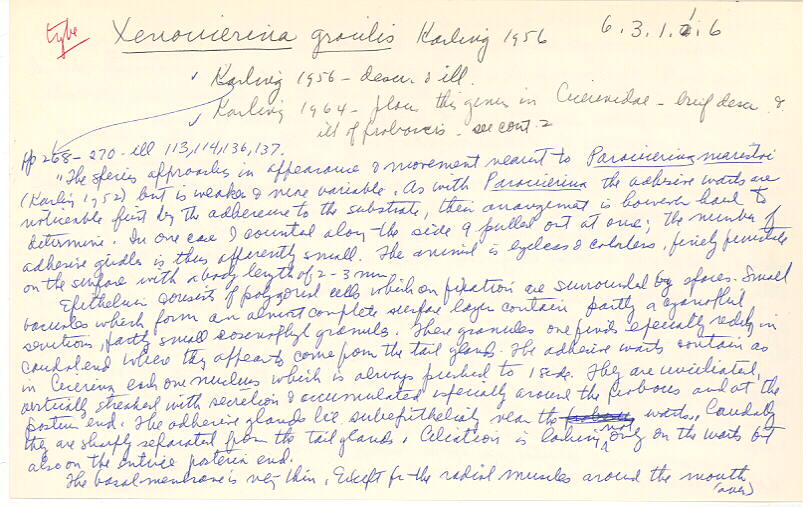 type Xenocicerina gracilis Karling 1956 6.3.1.1.6
✓ Karling 1956 - descr. & ill.
✓ Karling 1964 - places this genus in Cicerinidae - brief descr. &
ill of proboscis - see cont. 2
pp 268 - 270 - ill 113, 114, 136, 137.
"The species approaches in appearance & movement nearest to Paracicerina maristoi
(Karling 1952) but is weaker & more variable. As with Paracicerina the adhesive warts are
noticeable first by the adherence to the substrate, their arrangement is however hard to
determine. In one case I counted along the side 9 pulled out at once; the number of
adhesive girdles is thus apparently small. The animal is eyeless & colorless, finely
on the surface with a body length of 2-3 mm.
Epithelium consists of polygonal cells which on fixation are surrounded by spaces. Small
vacuoles which form an almost complete surface layer contain partly a cyanophil
secretions, partly small eosinophyl granula. These granules one finds especially readily in
caudal end where they appear to come from the tail glands. The adhesive warts contain as
in Cicerina each one nucleus which is always pushed to 1 side. They are unciliated,
vertically streaked with secretion & accumulated especially around the proboscis and at the
posterior end. The adhesive glands lie subepithelially near the warts. Caudally
they are sharply separated from the tail glands. Ciliation is lacking not only on the warts but
also on the entire posterior end.
The basal membrane is very thin. Except for the radial muscles around the mouth
(over)